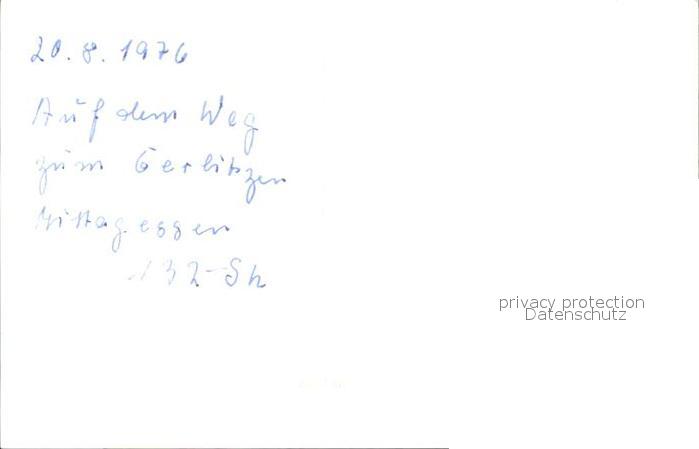 20.8.1976
Auf dem Weg
zum Gerlitzen
Mittagessen
132-Sh
privacy protection
Datenschutz